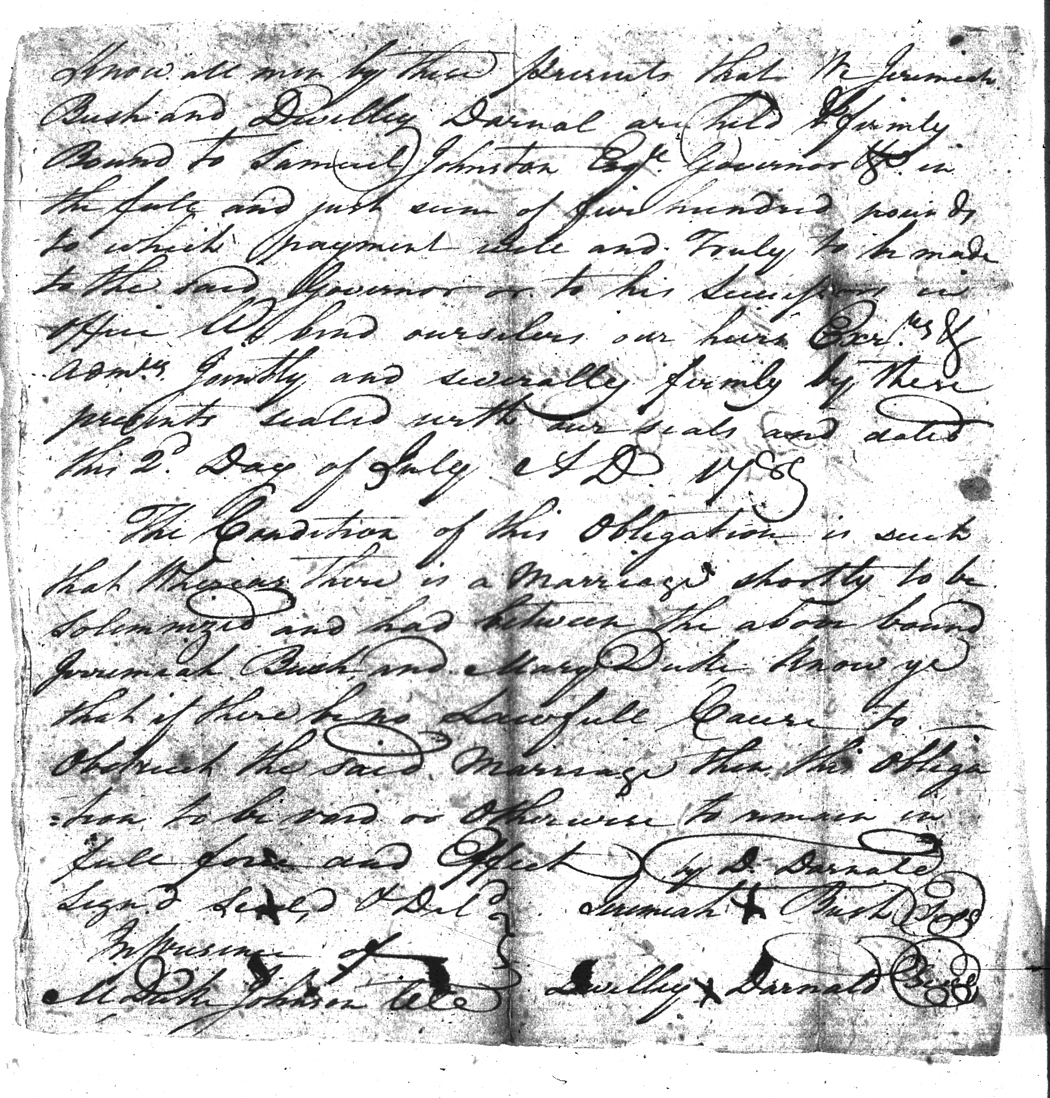 Know all men by these presents that We Jeremiah
Bush and Dwelley Darnal are held & firmly
Bound to Samuel Johnston Esqr. Governor &c. in
the full and just sum of five hundred pounds
to which payment well and Truly to be made
to the said Governor or to his Successors in
office We bind ourselves our heirs Exrs. &
Admrs. Jointly and severally firmly by these
presents sealed with our seals and dated
this 2d. Day of July A D. 1789
The Condition of this Obligation is such
that Whereas there is a Marriage shortly to be
Solemnized and had between the above bound
Jeremiah Bush and Mary Duke Know ye
that if there be no Lawfull Cause to
Obstruct the said Marriage then this Obliga
=tion to be void or Otherwise to remain in
full force and Effect by D. Darnald
Signd Sealed & Deld
Jeremiah X Bush Seal
In presence of
M Duke Johnson
Dwelley X Darnald Seal